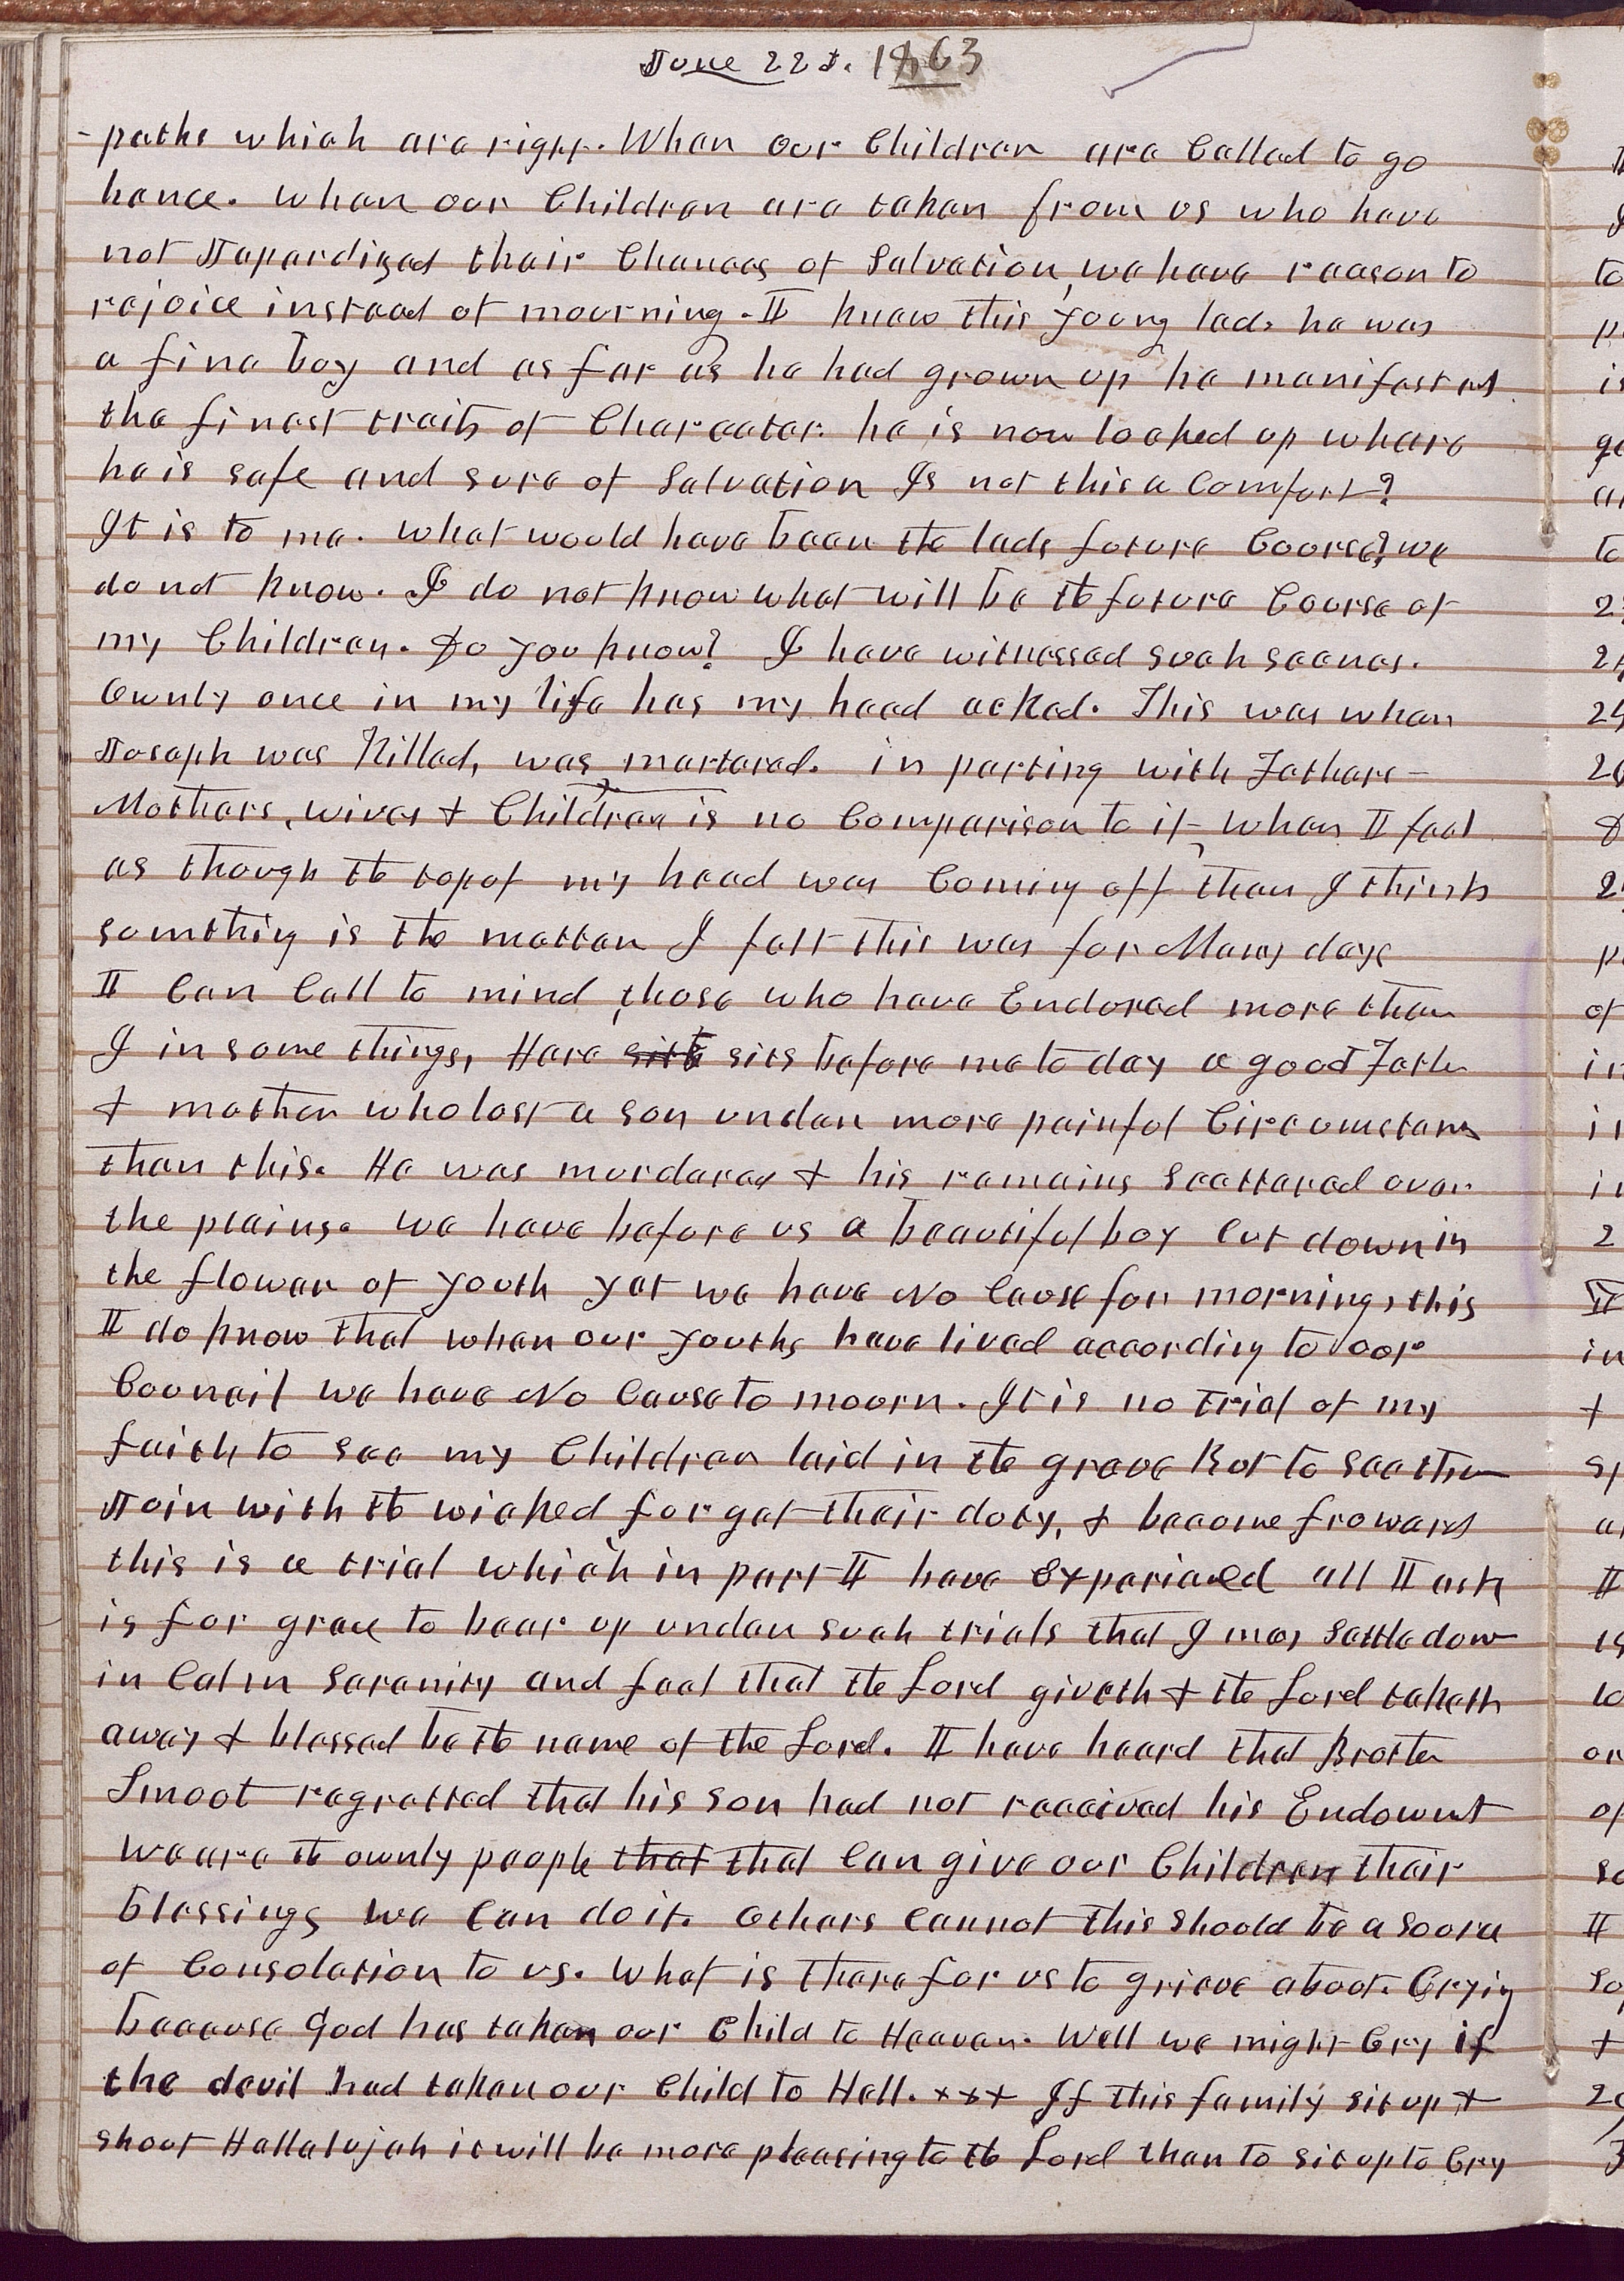 June 22d. 1863
-paths which are right. When our Children are Called to go
hence. when our Children are taken from us who have
not Jepardized their Chances of Salvation, we have reason to
rejoice instead of mourning. I knew this young lad. he was
a fine boy and as far as he had grown up he manifested
the finest traits of Character. he is now locked up where
he is safe and sure of Salvation Is not this a Comfort?
It is to me. what would have been the lads future Course? we
do not know. I do not know what will be the future Course of
my Children. Do you know? I have witnessed such scenes.
ownly once in my life has my head acked. This was when
Joseph was Killed, was martered. in parting with Fathers-
Mothers, wives & Children is no Comparison to it- when I feel
as though the top of my head was Coming off, then I think
somthing is the matter I felt this way for Many days
I Can Call to mind those who have Endured more than
I in some things, Here sits sits before me to day a good Father
& mother who lost a son under more painful Circumstans
than this. He was murdered & his remains scattered over
the plains. we have before us a beautiful boy Cut down in
the flower of youth yet we have No Cause for morning, this
I do know that when our youths have lived according to our
Council we have No Cause to mourn. It is no trial of my
faith to see my Children laid in the grave But to see them
Join with the wicked forget their duty, & become froward
this is a trial which in part I have Experiaced all I ask
is for grace to bear up under such trials that I may settle down
in Calm Serenity and feel that the Lord giveth & the Lord taketh
away & blessed be the name of the Lord. I have heard that Brother
Smoot regretted that his son had not received his Endowmt
we are the ownly people that that Can give our Children their
blessings we Can do it. others Cannot this should be a source
of Consolation to us. What is there for us to grieve about. Crying
because God has taken our Child to Heaven. Well we might Cry if
the devil had taken our Child to Hell. +++ If this family sit up &
shout Hallalujah it will be more pleasing to the Lord than to sit up to Cry